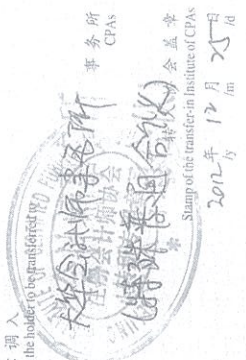 调入
the holder to be transferred to
大华会计师事务所 事务所
CPAs
(特殊普通合伙) 会盖章
Stamp of the transfer-in Institute of CPAs
2012年 12月 25日
/y /m /d